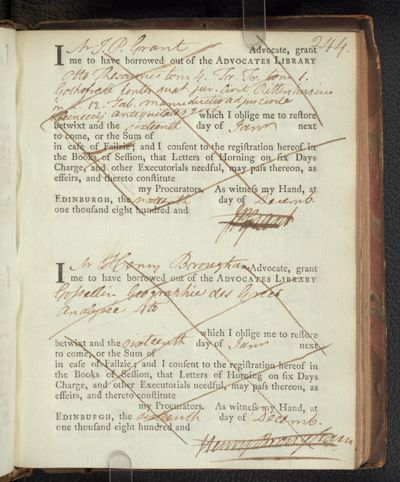 244.
I Mr J. P. Grant Advocate, grant
me to have borrowed out of the ADVOCATES LIBRARY
Otto Thesaurus tom 4. Tr. Tr. tom 1.
Gothofredi jur. civil. Rittershusius
in 12. Tab. manuductio ad jus civile
Heineccii antiquitates which I oblige me to restore
betwixt and the sixteenth day of Janr next
to come, or the Sum of
in case of Failzie; and I consent to the registration hereof in
the Books of Session, that Letters of Horning on six Days
Charge, and other Executorials needful, may pass thereon, as
effeirs, and thereto constitute
my Procurators. As witness my Hand, at
EDINBURGH, the sixteenth day of Decemb.
one thousand eight hundred and
I Mr Henry Brougham Advocate, grant
me to have borrowed out of the ADVOCATES LIBRARY
Gossellin Geographie des Grecs
Analysée 4to
which I oblige me to restore
betwixt and the sixteenth day of Janr next
to come, or the Sum of
in case of Failzie; and I consent to the registration hereof in
the Books of Session, that Letters of Horning on six Days
Charge, and other Executorials needful, may pass thereon, as
effeirs, and thereto constitute
my Procurators. As witness my Hand, at
EDINBURGH, the sixteenth day of Decemb.
one thousand eight hundred and
Henry Brougham